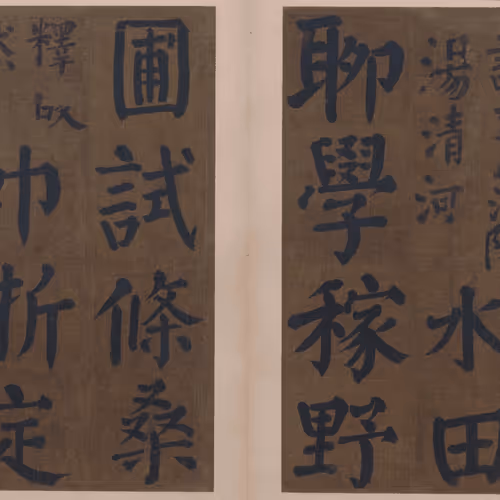 湯清河
水田
聊學稼野
圃試條桑
釋
巾折定